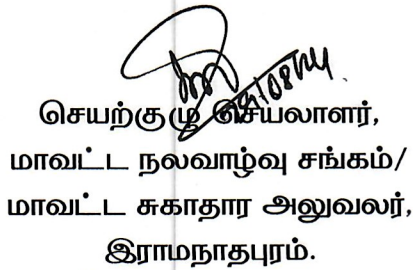 செயற்குழு செயலாளர்,
மாவட்ட நலவாழ்வு சங்கம்/
மாவட்ட சுகாதார அலுவலர்,
இராமநாதபுரம்.